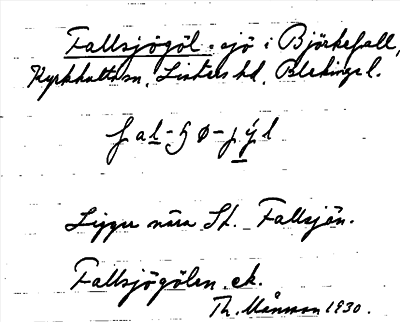 Fallsjögöl. sjö i Björkefall,
Kyrkhults sn, Listers hd, Blekinge l.
fal-ʂø-jýl
Ligger nära St. Fallsjön.
Fallsjögölen. ek.
Th. Månsson 1930.